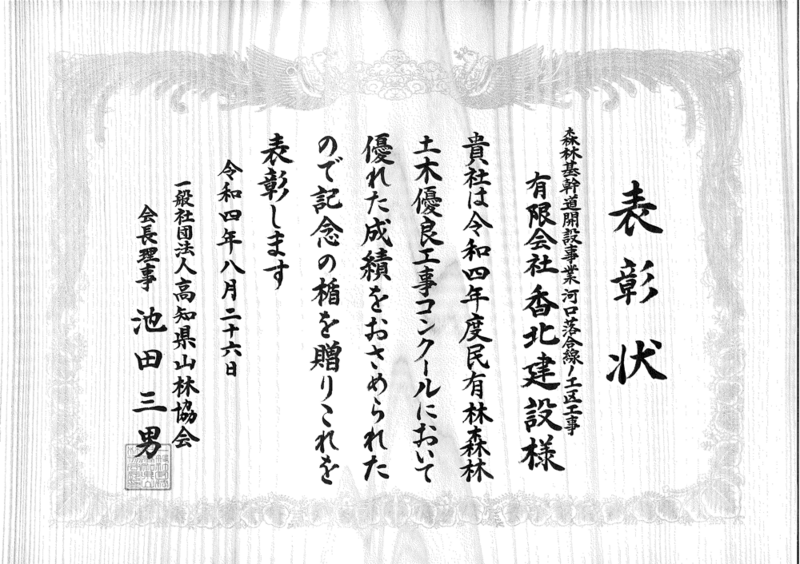 表彰状
森林基幹道開設事業 河口落合線ノ工区工事
有限会社 香北建設様
貴社は令和四年度民有林森林
土木優良工事コンクールにおいて
優れた成績をおさめられた
ので記念の楯を贈りこれを
表彰します
令和四年八月二十六日
一般社団法人高知県山林協会
会長理事 池田三男